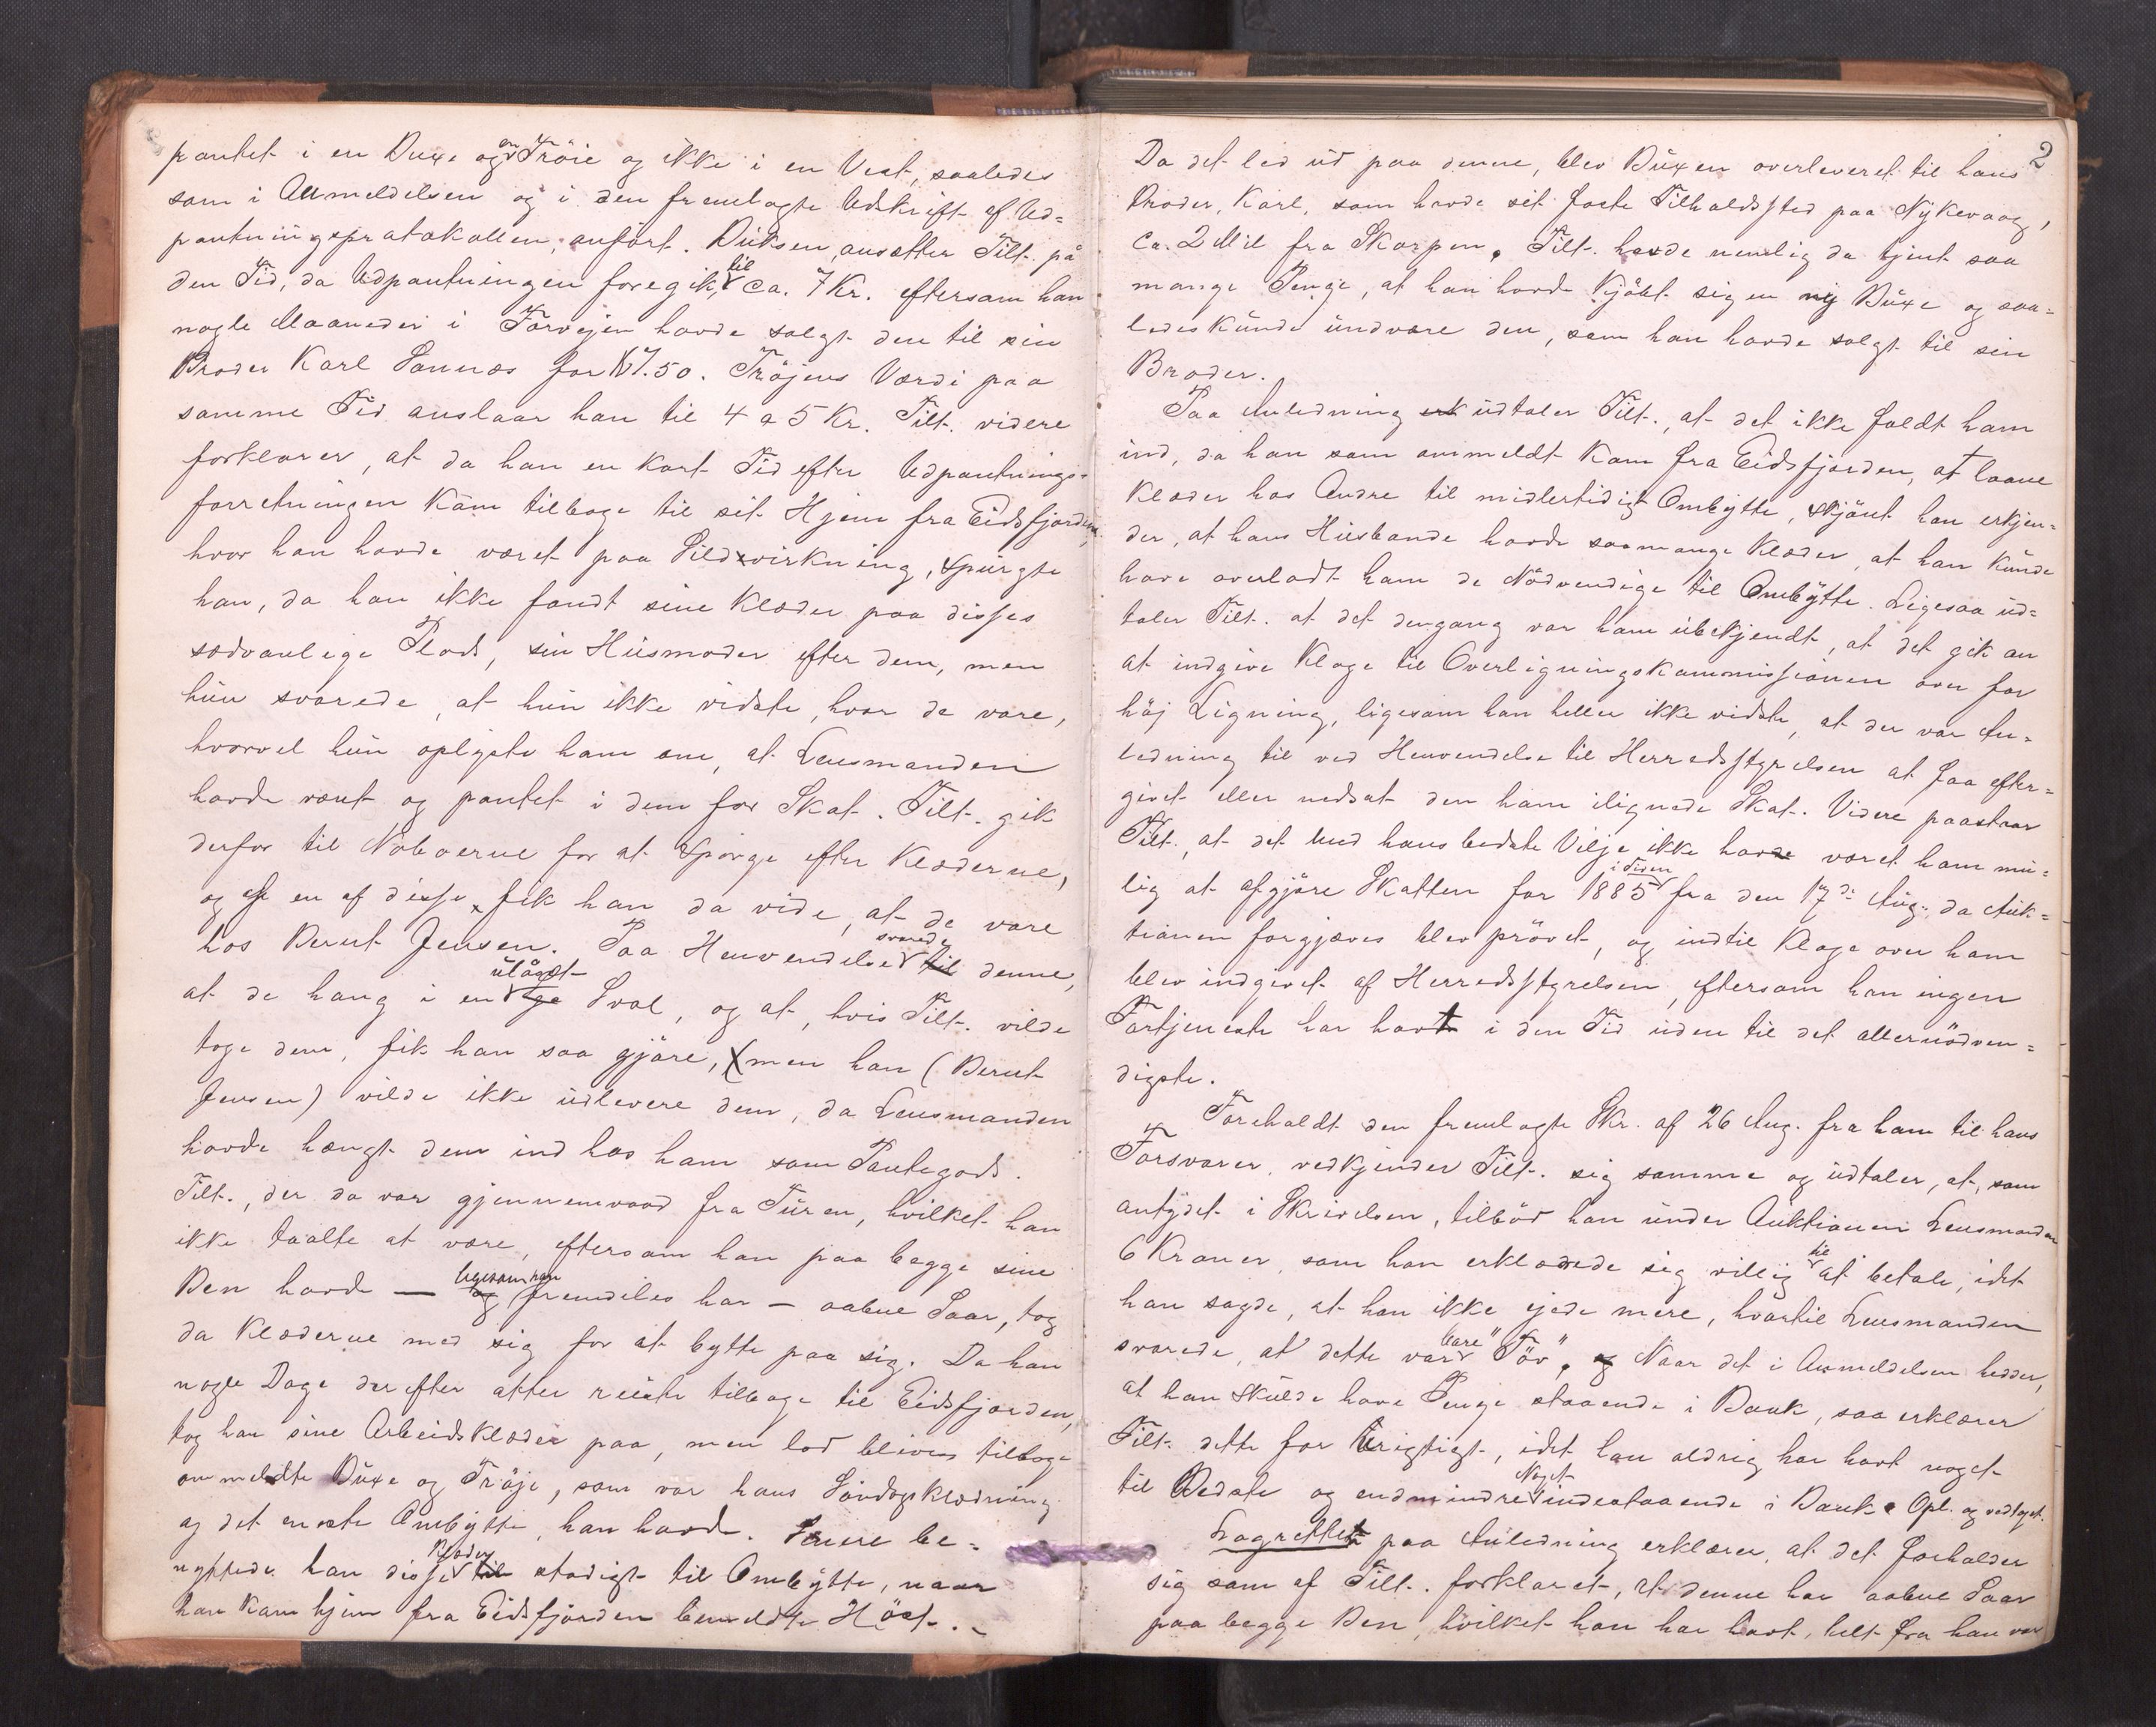 pantet i en Buxe og en Trøie og ikke i en Vest, saaledes
som i Anmeldelsen og i den fremlagte Udskrift af Ud=
pantningsprotokollen, anført. Buksen, ansætter Tilt. på
den Tid, da Udpantningen foregik, til ca. 7 Kr. eftersom han
nogle Maaneder i Forvejen havde solgt den til sin
Broder Karl Sannæs for K 7.50. Trøjens Værdi paa
samme Tid anslaar han til 4 a 5 Kr. Tilt. videre
forklarer, at da han en kort Tid efter Udpantnings-
forretningen kom tilbage til sit Hjem fra Eidsfjorden,
hvor han havde været paa Sildvirkning, spurgte
han, da han ikke fandt sine Klæder paa disses
sædvanlige Plads, sin Husmoder efter dem, men
hun svarede, at hun ikke vidste, hvor de vare,
hvorvel hun oplyste ham om, at Lensmanden
havde været og pantet i dem for Skat. Tilt. gik
derfor til Naboerne for at spørge efter Klæderne,
og af en af disse fik han da vide, at de vare
hos Bernt Jensen. Paa Henvendelse svarede denne,
at de hang i en ulåst Sval, og at, hvis Tilt. vilde
tage dem, fik han saa gjøre, men han (Bernt
Jensen) vilde ikke udlevere dem, da Lensmanden
havde hængt dem ind hos ham som Pantegods.
Tilt., der da var gjennemvaad fra Turen, hvilket han
ikke taalte at være, eftersom han paa begge sine
Ben havde — ligesom han fremdeles har — aabne Saar, tog
da Klæderne med sig for at bytte paa sig. Da han
nogle Dage derefter atter reiste tilbage til Eidsfjorden,
tog han sine Arbeidsklæder paa, men lod blive tilbage
ommeldte Buxe og Trøje, som var hans Søndagsklædning
og det eneste Ombytte, han havde. Senere be=
nyttede han disse Klæder stadigt til Ombytte, naar
han kom hjem fra Eidsfjorden bemeldte Høst. -
2
Da det led ud paa denne, blev Buxen overleveret til hans
Broder, Karl, som havde sit faste Tilholdssted paa Nykvaag,
ca. 2 Mil fra Skarpen. Tilt. havde nemlig da tjent saa
mange Penge, at han havde kjøbt sig en ny Buxe og saa=
ledes kunde undvære den, som han havde solgt til sin
Broder.
Paa Anledning udtaler Tilt., at det ikke faldt ham
ind, da han som ommeldt kom fra Eidsfjorden, at laane
Klæder hos Andre til midlertidigt Ombytte, skjønt han erkjen=
der, at hans Husbonde havde saamange Klæder, at han kunde
have overladt ham de Nødvendige til Ombytte. Ligesaa ud=
taler Tilt. at det dengang var ham ubekjendt, at det gik an
at indgive Klage til Overligningskommissionen over for
høj Ligning, ligesom han heller ikke vidste, at der var An=
ledning til ved Henvendelse til Herredsstyrelsen at faa efter=
givet eller nedsat den ham ilignede Skat. Videre paastaar
Tilt., at det med hans bedste Vilje ikke havde været ham mu=
lig at afgjøre Skatten for 1885 i Tiden fra den 17de Aug., da Auk=
tionen forgjæves blev prøvet, og indtil Klage over ham
blev indgivet af Herredsstyrelsen, eftersom han ingen
Fortjeneste har havt i den Tid uden til det allernødven=
digste.
Foreholdt den fremlagte Skr. af 26 Aug. fra ham til hans
Forsvarer, vedkjender Tilt. sig samme og udtaler, at, som
antydet i Skrivelsen, tilbød han under Auktionen Lensmanden
6 Kroner, som han erklærede sig villig til at betale, idet
han sagde, at han ikke ejede mere, hvortil Lensmanden
svarede, at dette var bare "Tøv". Naar det i Anmeldelsen hedder,
at han skulde have Penge staaende i Bank, saa erklærer
Tilt. dette for Urigtigt, idet han aldrig har havt noget
til Bedste og endmindre Noget indestaaende i Bank. Opl. og vedtaget.
Lagrettet paa Anledning erklærer, at det forholder
sig som af Tilt. forklaret, at denne har aabne Saar
paa begge Ben, hvilket han har havt, helt fra han var